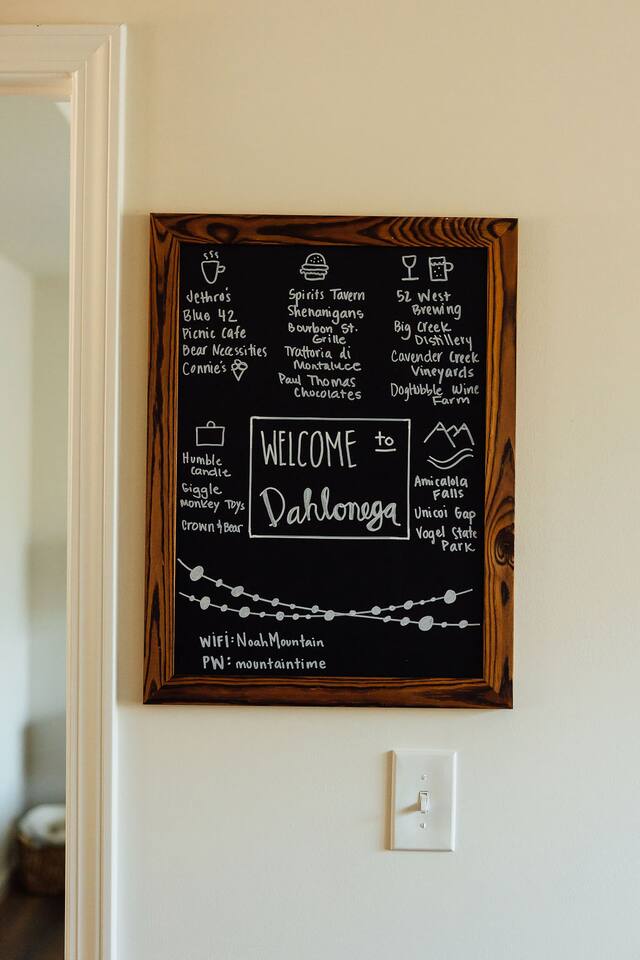 Jethro's
Blue 42
Picnic Cafe
Bear Necessities
Connie's
Spirits Tavern
Shenanigans
Bourbon St.
Grille
Trattoria di
Montaluce
Paul Thomas
Chocolates
52 West
Brewing
Big Creek
Distillery
Cavender Creek
Vineyards
Dog Hobble Wine
Farm
Humble
Candle
Giggle
Monkey Toys
Crown & Bear
WELCOME to
Dahlonega
Amicalola
Falls
Unicoi Gap
Vogel State
Park
WIFI: NoahMountain
PW: mountaintime